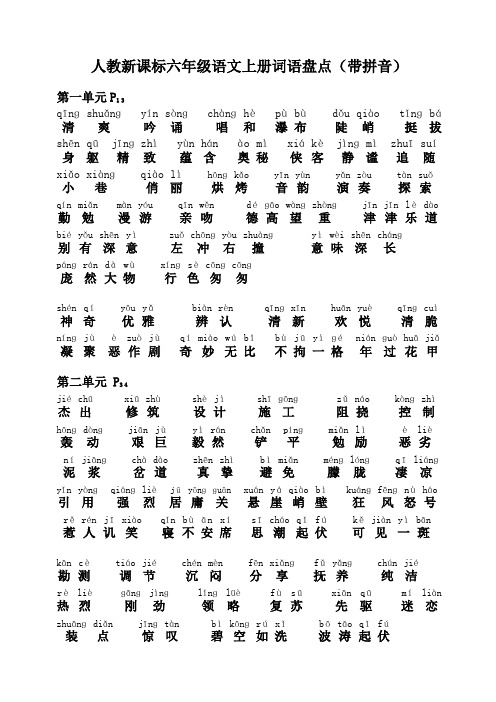 人教新课标六年级语文上册词语盘点（带拼音）
第一单元P₁₃
qīng shuǎng yín sòng chàng hè pù bù dǒu qiào tǐng bá
清 爽 吟 诵 唱 和 瀑 布 陡 峭 挺 拔
shēn qū jīng zhì yùn hán ào mì xiá kè jìng mì zhuī suí
身 躯 精 致 蕴 含 奥 秘 侠 客 静 谧 追 随
xiǎo xiàng qiào lì hōng kǎo yīn yùn yǎn zòu tàn suǒ
小 巷 俏 丽 烘 烤 音 韵 演 奏 探 索
qín miǎn màn yóu qīn wěn dé gāo wàng zhòng jīn jīn lè dào
勤 勉 漫 游 亲 吻 德 高 望 重 津 津 乐 道
bié yǒu shēn yì zuǒ chōng yòu zhuàng yì wèi shēn cháng
别 有 深 意 左 冲 右 撞 意 味 深 长
páng rán dà wù xíng sè cōng cōng
庞 然 大 物 行 色 匆 匆
shén qí yōu yǎ biàn rèn qīng xīn huān yuè qīng cuì
神 奇 优 雅 辨 认 清 新 欢 悦 清 脆
níng jù è zuò jù qí miào wú bǐ bù jū yì gé nián guò huā jiǎ
凝 聚 恶 作 剧 奇 妙 无 比 不 拘 一 格 年 过 花 甲
第二单元 P₃₄
jié chū xiū zhù shè jì shī gōng zǔ náo kòng zhì
杰 出 修 筑 设 计 施 工 阻 挠 控 制
hōng dòng jiān jù yì rán chǎn píng miǎn lì è liè
轰 动 艰 巨 毅 然 铲 平 勉 励 恶 劣
ní jiāng chà dào zhēn zhì bì miǎn méng lóng qī liáng
泥 浆 岔 道 真 挚 避 免 朦 胧 凄 凉
yǐn yòng qiáng liè jū yōng guān xuán yá qiào bì kuáng fēng nù háo
引 用 强 烈 居 庸 关 悬 崖 峭 壁 狂 风 怒 号
rě rén jī xiào qǐn bù ān xí sī cháo qǐ fú kě jiàn yì bān
惹 人 讥 笑 寝 不 安 席 思 潮 起 伏 可 见 一 斑
kān cè tiáo jié chén mèn fēn xiǎng fǔ yǎng chún jié
勘 测 调 节 沉 闷 分 享 抚 养 纯 洁
rè liè gāng jìng lǐng lüè fù sū xiān qū mí liàn
热 烈 刚 劲 领 略 复 苏 先 驱 迷 恋
zhuāng diǎn jīng tàn bì kōng rú xǐ bō tāo qǐ fú
装 点 惊 叹 碧 空 如 洗 波 涛 起 伏